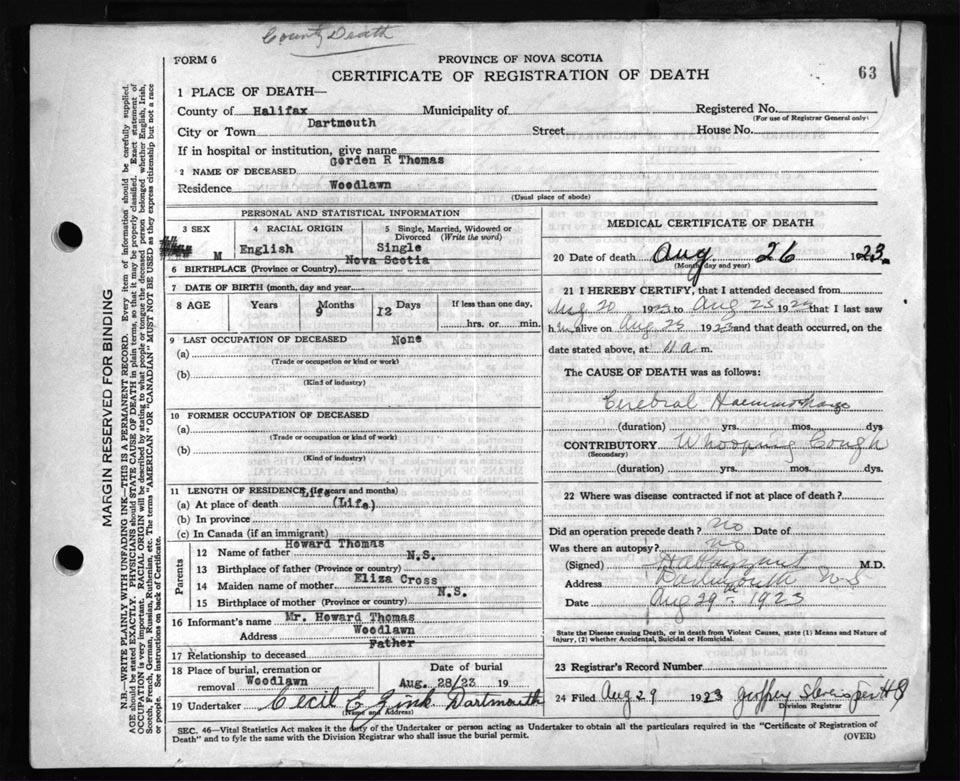 County Death
FORM 6
PROVINCE OF NOVA SCOTIA
CERTIFICATE OF REGISTRATION OF DEATH
63
1 PLACE OF DEATH—
County of Halifax Municipality of Registered No.
(For use of Registrar General only)
City or Town Dartmouth Street House No.
If in hospital or institution, give name
2 NAME OF DECEASED Gordon R Thomas
Residence Woodlawn
(Usual place of abode)
PERSONAL AND STATISTICAL INFORMATION
3 SEX M
4 RACIAL ORIGIN English
5 Single, Married, Widowed or Divorced (Write the word) Single
6 BIRTHPLACE (Province or Country) Nova Scotia
7 DATE OF BIRTH (month, day and year)
8 AGE Years Months 9 Days 12 If less than one day, hrs. or min.
9 LAST OCCUPATION OF DECEASED None
(a)
(Trade or occupation or kind or work)
(b)
(Kind of industry)
10 FORMER OCCUPATION OF DECEASED
(a)
(Trade or occupation or kind of work)
(b)
(Kind of industry)
11 LENGTH OF RESIDENCE (In years and months) Life
(a) At place of death (Life)
(b) In province
(c) In Canada (if an immigrant)
Parents
12 Name of father Howard Thomas
13 Birthplace of father (Province or country) N.S.
14 Maiden name of mother Eliza Cross
15 Birthplace of mother (Province or country) N.S.
16 Informant's name Mr. Howard Thomas
Address Woodlawn
17 Relationship to deceased Father
18 Place of burial, cremation or removal Woodlawn Date of burial Aug. 28/23 19
19 Undertaker Cecil E Zink Dartmouth
(Name and Address)
MEDICAL CERTIFICATE OF DEATH
20 Date of death Aug 26 1923
(Month, day and year)
21 I HEREBY CERTIFY, that I attended deceased from
Aug 20 1923 to Aug 25 1923 that I last saw
h im alive on Aug 25 1923 and that death occurred, on the
date stated above, at 11 a m.
The CAUSE OF DEATH was as follows:
Cerebral Haemorrhage
(duration) yrs. mos. dys
CONTRIBUTORY Whooping Cough
(Secondary)
(duration) yrs. mos. dys.
22 Where was disease contracted if not at place of death?
Did an operation precede death? no Date of
Was there an autopsy? no
(Signed) M.D.
Address Dartmouth N S
Date Aug 29th 1923
State the Disease causing Death, or in death from Violent Causes, state (1) Means and Nature of
Injury, (2) whether Accidental, Suicidal or Homicidal.
23 Registrar's Record Number
24 Filed Aug 29 1923 Geoffrey
Division Registrar
SEC. 46—Vital Statistics Act makes it the duty of the Undertaker or person acting as Undertaker to obtain all the particulars required in the "Certificate of Registration of
Death" and to fyle the same with the Division Registrar who shall issue the burial permit. (OVER)
MARGIN RESERVED FOR BINDING
N.B.—WRITE PLAINLY, WITH UNFADING INK—THIS IS A PERMANENT RECORD. Every item of information should be carefully supplied.
AGE should be stated EXACTLY. PHYSICIANS should STATE CAUSE OF DEATH in plain terms, so that it may be properly classified. Exact statement of
OCCUPATION is very important. RACIAL ORIGIN will be described by stating to what people or tongue the deceased person belonged whether English, Irish,
Scotch, French, German, Russian, Ruthenian, etc. The terms "AMERICAN" or "CANADIAN" MUST NOT BE USED as they express citizenship but not a race
or people. See instructions on back of Certificate.